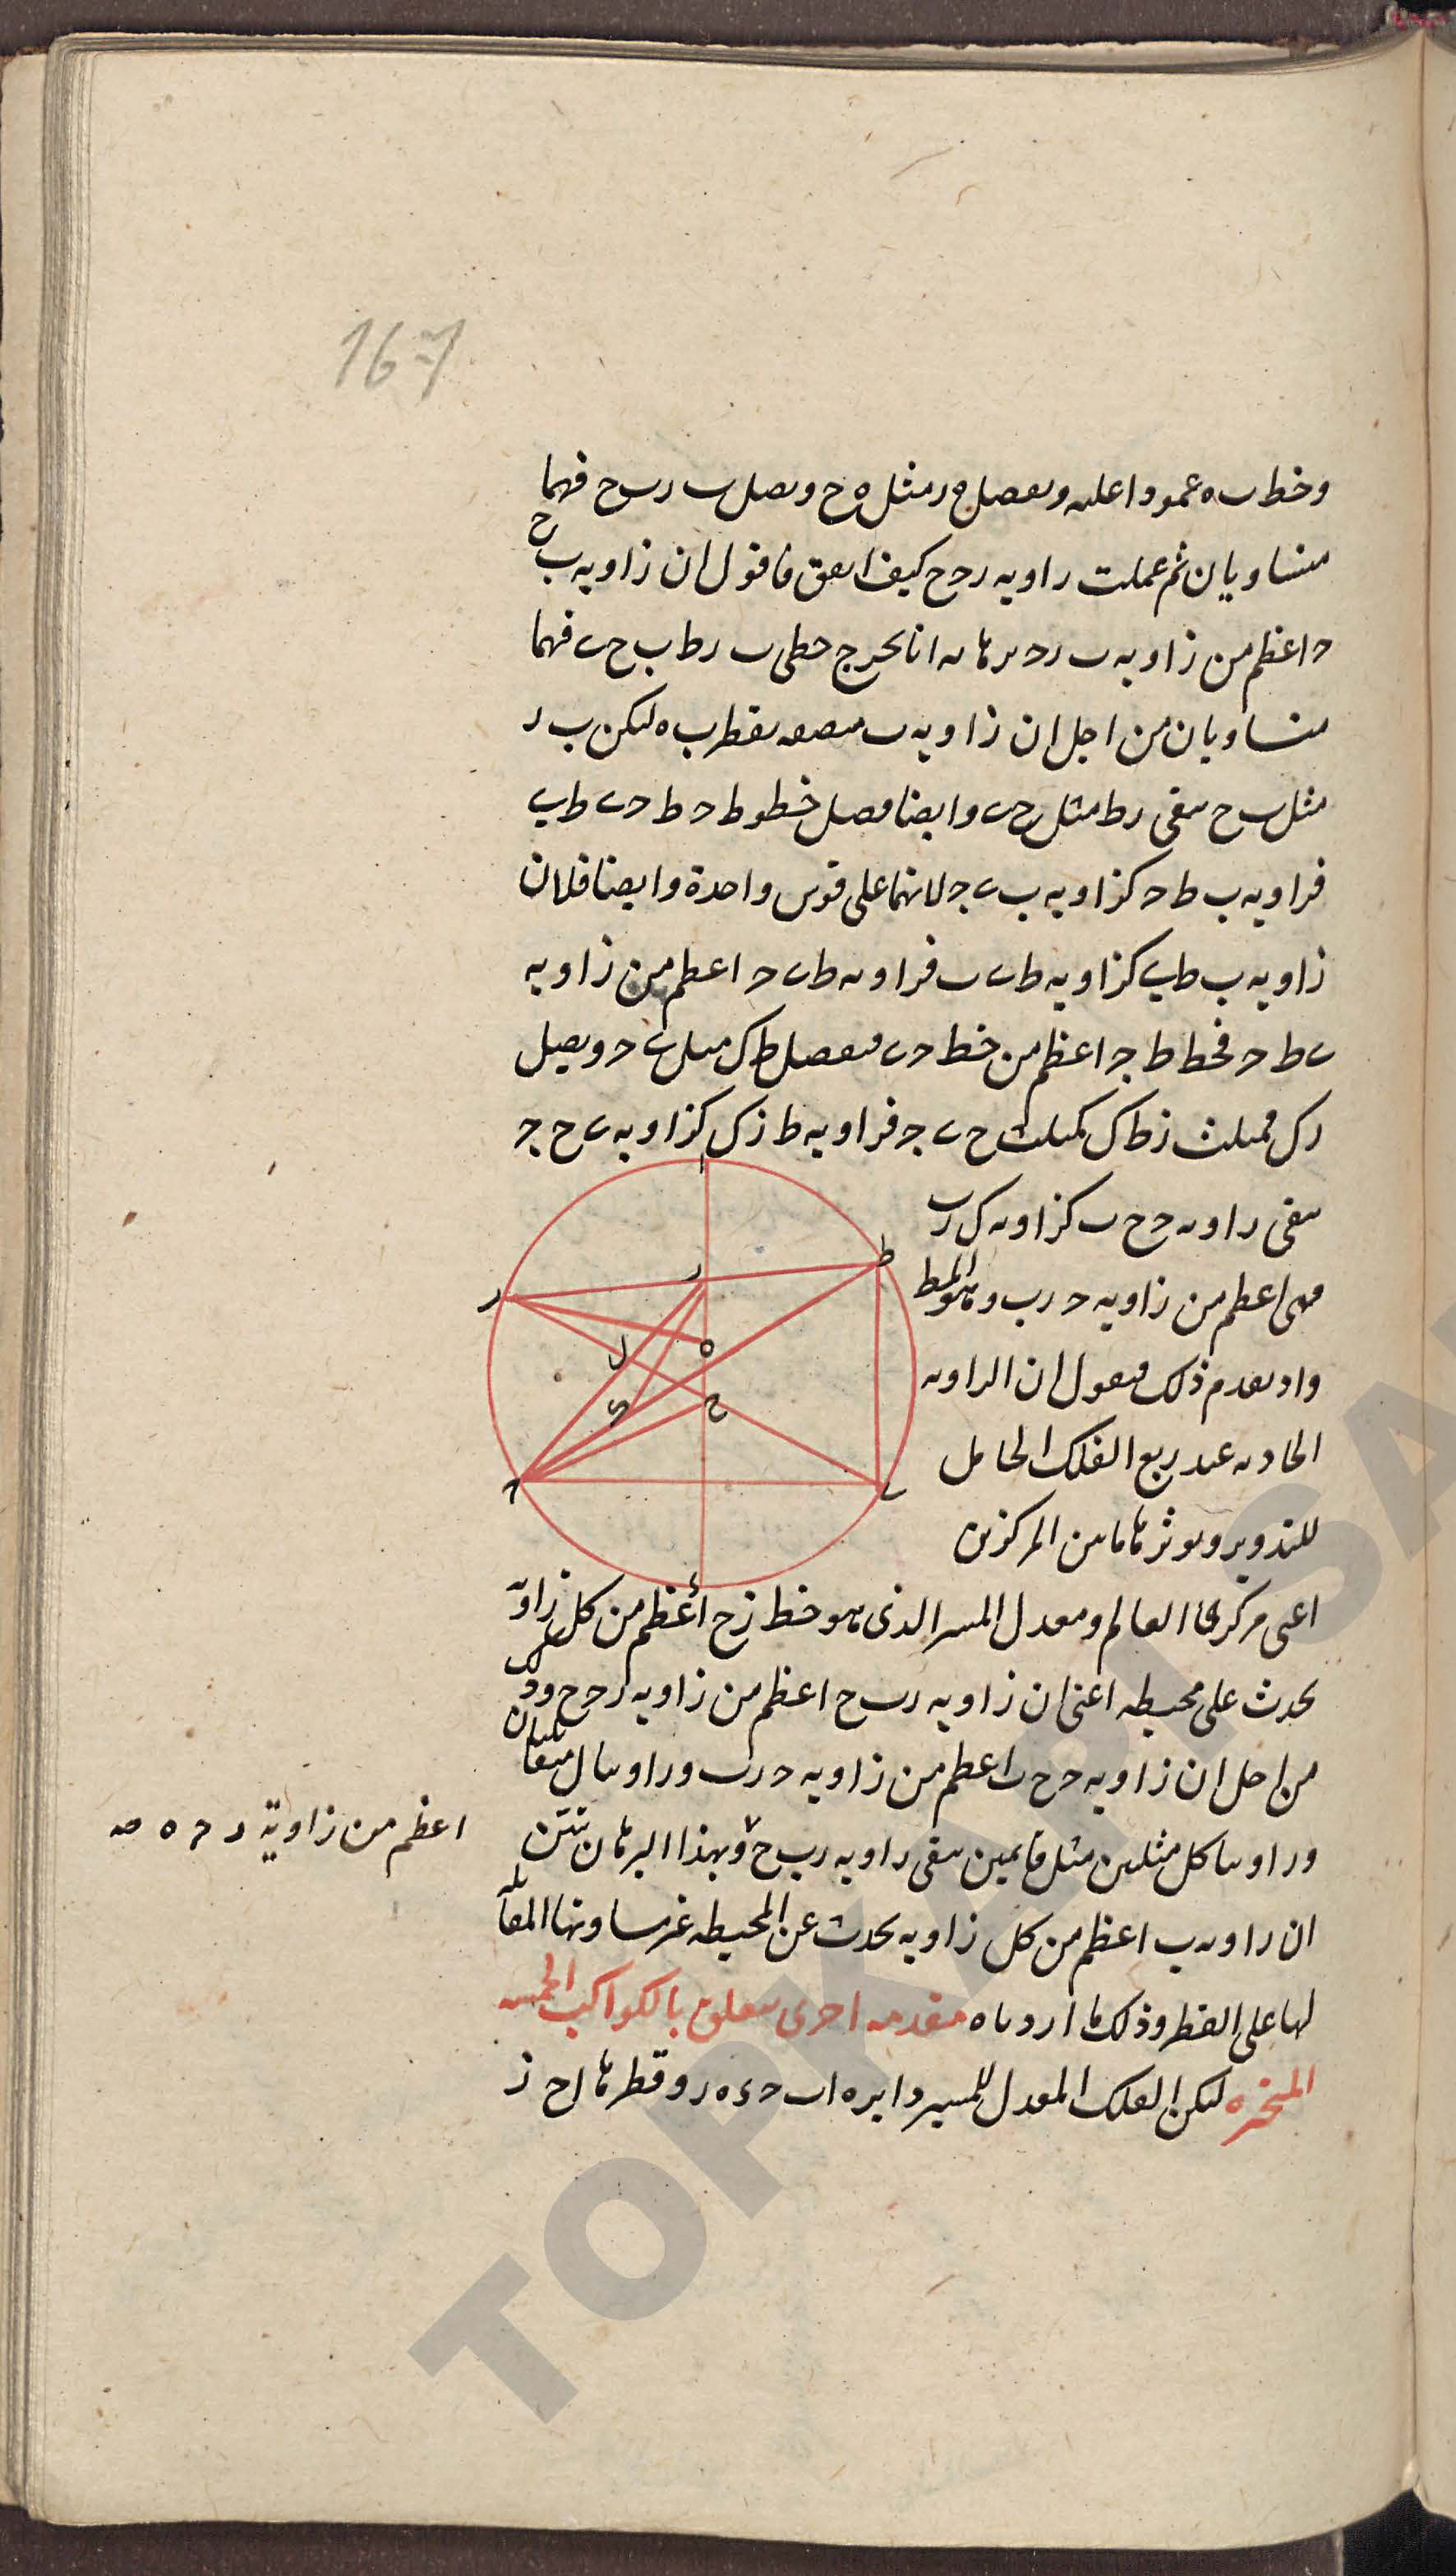 167
وخط ب ه عمودا عليه ونفصل ه ر مثل ه ح ونصل ب ر ب ح فهما
متساويان ثم عملت زاويه ر ح ح كيف اتفق فاقول ان زاويه ب ح
ح اعظم من زاويه ب ر ح برهانه انا نخرج خطى ب ر ط ب ح ى فهما
متساويان من اجل ان زاويه ب منصفه بقطر ب ه لكن ب ر
مثل ب ح يبقى ر ط مثل ح ى وايضا فصل خطوط ح ط ح ى ط ى
فزاويه ب ط ح كزاويه ب ى ج لانهما على قوس واحدة وايضا فلان
زاويه ب ط ى كزاويه ط ى ب فزاويه ط ى ح اعظم من زاويه
ى ط ح فخط ط ج اعظم من خط ح ى فنفصل ط ك مثل ى ح ونصل
ر ك فمثلث ز ط ك كمثلث ح ى ج فزاويه ط ز ك كزاويه ى ح ج
يبقى زاويه ح ح ب كزاويه ك ر ب
فهى اعظم من زاويه ح ر ب وهو المط
واذ تقدم ذلك فنقول ان الزاويه
الحادثه عند ربع الفلك الحامل
للتدوير ويوترها ما بين المركزين
اعنى مركزى العالم ومعدل المسير الذى هو خط ز ح أعظم من كل زاويه
تحدث على محيطه اعنى ان زاويه ر ب ح اعظم من زاويه ر ح ح وذلك
من اجل ان زاويه ح ح ب اعظم من زاويه ح ر ب وزاويتا ل متقابلتان
وزاويتا كل مثلثين مثل قايمين يبقى زاويه ر ب ح وبهذا البرهان نتبين
اعظم من زاوية ر ح ه صه
ان زاويه ب اعظم من كل زاويه تحدث عن المحيطه غير مساويتها المقابله
لها على القطر وذلك ما اردناه مقدمه اخرى تتعلق بالكواكب الخمسه
المتحيره ليكن الفلك المعدل للمسير دايره ا ب ح د ه ر وقطرها ا ح ز
ا
ط
ر
ر
ه
ل
ى
ح
ح
ب
ء
TOPKAPI SA